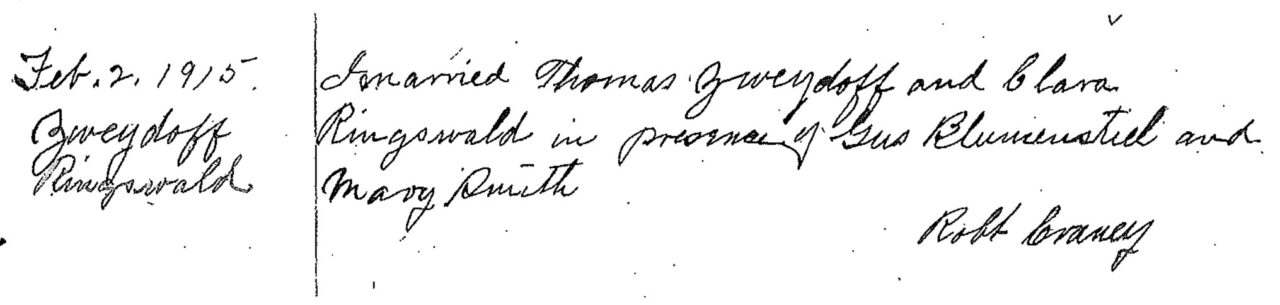 Feb. 2. 1915.
Zweydoff
Ringswald
I married Thomas Zweydoff and Clara
Ringswald in presence of Gus Blumenstiel and
Mary Smith
Robt Craney